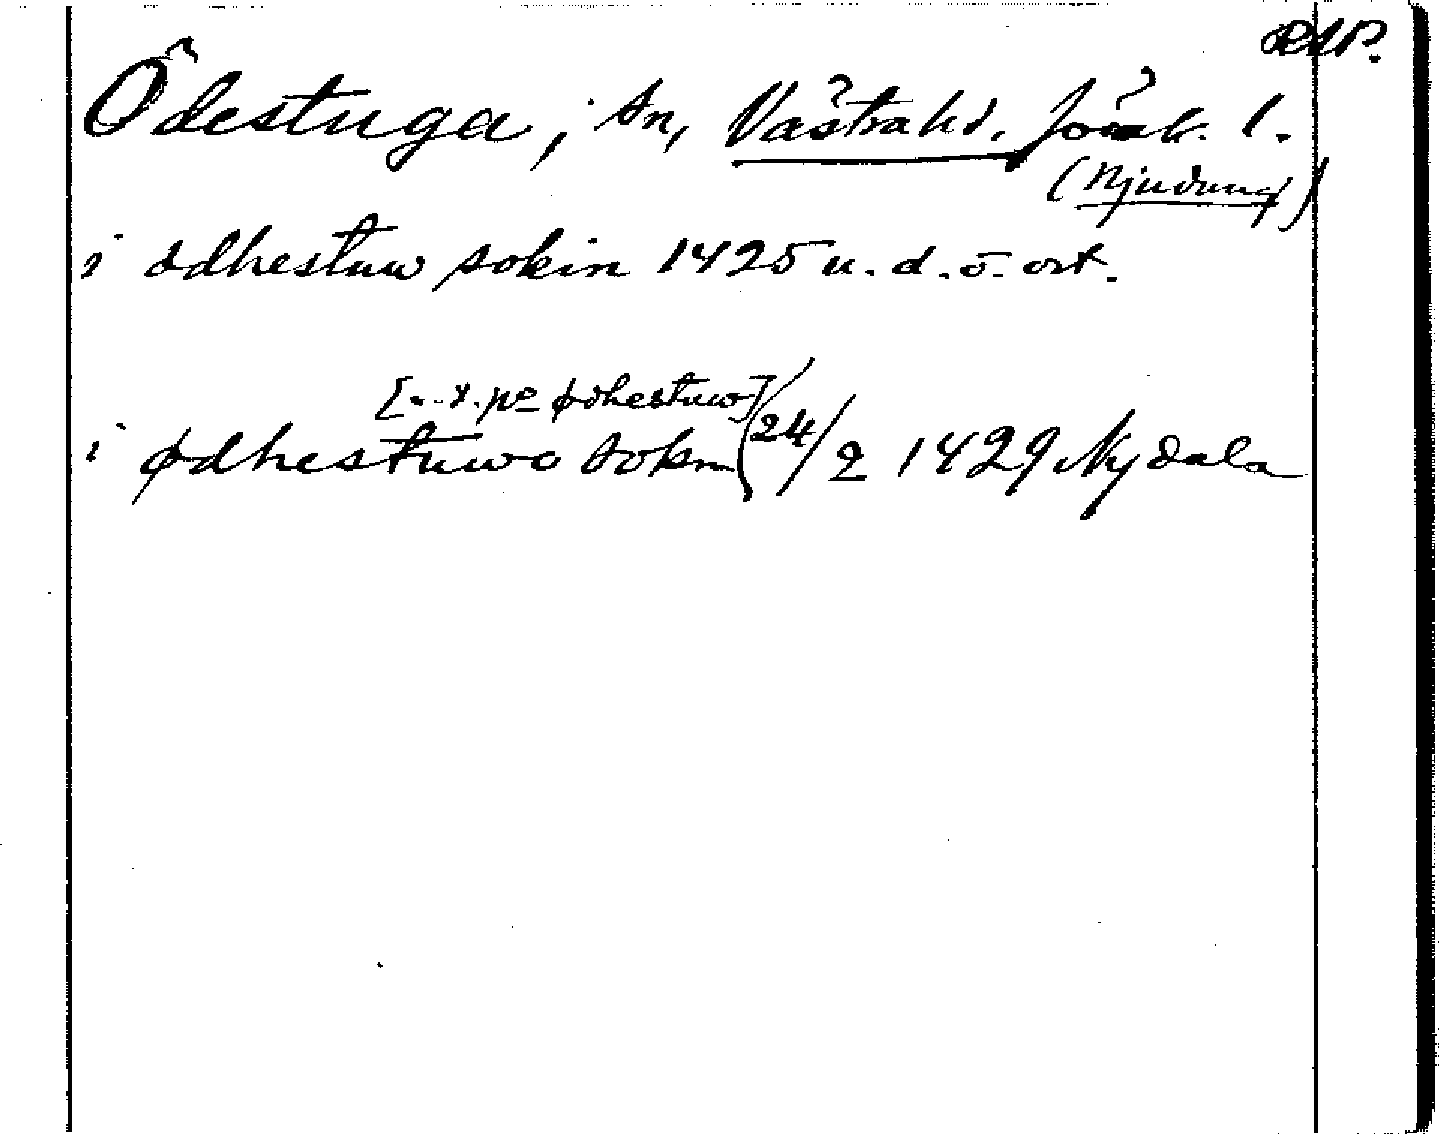 Ödestuga, sn, Västra hd. Jönk. l.
(Njudung)
i ødhestuw sokin 1425 u. d. o. ort.
[.. x. pe ødhestuw]
i ødhestuwo sokn 24/2 1429 Nydala